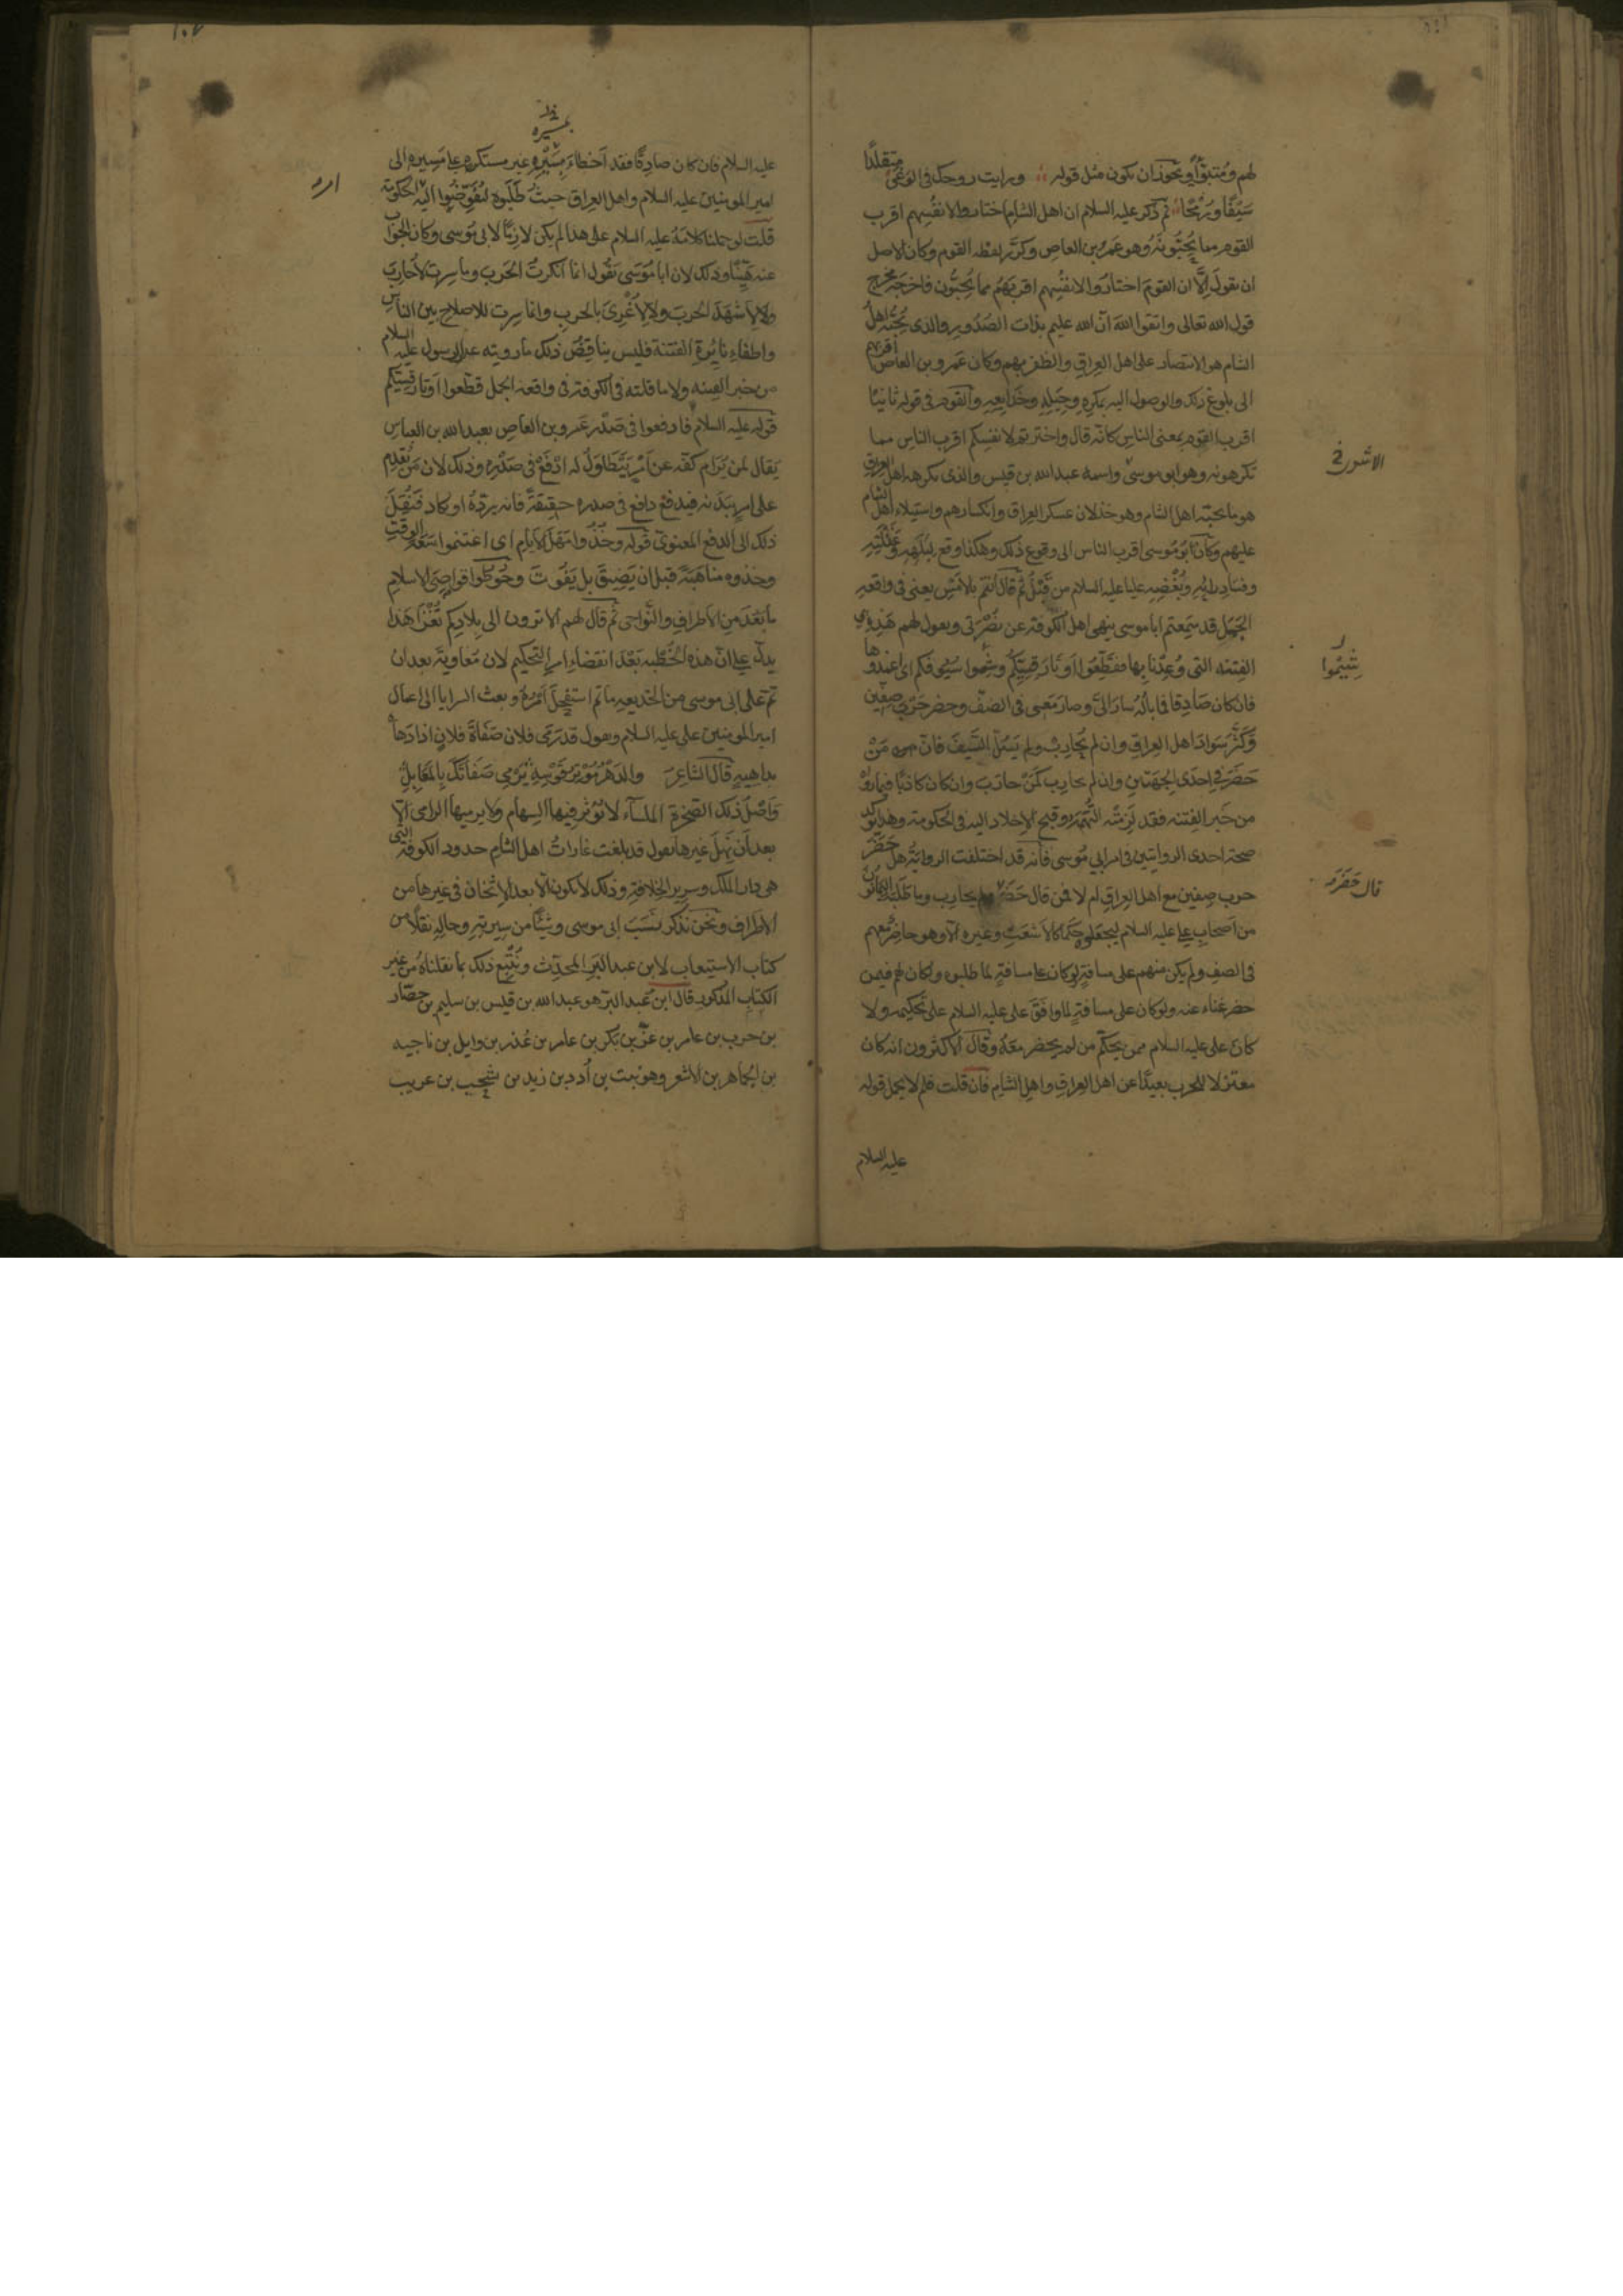 لهم ومتبوّأ ويجوز ان يكون مثل قوله ورايت زوجك فى الوغى متقلدًا
سَيْفًا ورُمْحًا ثم ذكر عليه السلام ان اهل الشام اختاروا لانفسهم اقرب
القوم مما يُحِبّونَهُ وهو عَمرو بن العاص وكرّر لفظه القوم وكان الاصل
ان يقولَ الا ان القومَ اختارُوا لانفُسِهم اقربَهُم مما يُحِبُّون فاخرجه مخرج
قول الله تعالى واتقوا اللهَ انّ الله عليم بذات الصُدُور والذى يُحِبّه اهلُ
الشام هو الانتصار على اهل العراق والظفر بهم وكان عمرو بن العاص اقربهم
الى بلوغ ذلك والوصول اليه بمكرِهِ وحِيَلِهِ وخَدَايعِهِ والقوم فى قوله ثانيًا
اقرب القوم بمعنى الناس كانّه قال واخترتم لانفسكم اقرب الناس مما
تكرهونه وهو ابو موسى واسمه عبد الله بن قيس والذى يكرهه اهل العراق
هو ما يحبّه اهل الشام وهو خذلان عسكر العراق وانكسارهم واستيلاء اهل الشام
عليهم وكان ابو موسى اقرب الناس الى وقوع ذلك وهكذا وقع لبلهه وغفلته
وفساد رايه وبُغْضِهِ عليا عليه السلام من قَبْلُ ثم قال انتم بالامس يعنى فى واقعه
الجَمَل قد سَمِعتم ابا موسى ينهى اهل الكوفه عن نصْرَتى ويقول لهم هَذِهِ هى
الفِتنه التى وُعِدْنا بِها فقَطِّعُوا اَوتارَ قِسِيّكم وشِيمُوا سُيُوفكم اى اغمدوها
فان كان صَادِقا فما بالُهُ سارَ الىَّ وصار مَعى فى الصف وحضر حَرْب صفين
وكَثّر سَوادَ اهل العراق وان لم يُحَارِبْ ولم يَسُلّ السَّيفَ فانّ مَنْ
حَضَرَ فى احِدَى الجِهَتينِ وان لم يحارب كمَنْ حارَبَ وان كان كاذبًا فيما رواهُ
من خَبر الفِتنه فقد لَزِمَتْه التُّهمَه وقبح الاخلاد اليه فى الحكومة وهذا يوكد
صحّة احدى الروايتين فى امر ابى مُوسى فانّه قد اختلفت الرواية هل حَضَرَ
حرب صِفين مع اهل العراق ام لا فمن قال حَضَرَ ولم يحارب وما طلبه اليمانون
من اصحابِ على عليه السلام ليجعلوه حَكَما كالاشعَث وغيره الا وهو حاضرٌ معهم
فى الصف ولم يكن منهم على مسافةٍ لو كان على مسافةٍ لما طلبوه ولكان لهم فيمن
حضر غناء عنه ولو كان على مسافةٍ لما وافق على عليه السلام على تحكيمه ولا
كان على عليه السلام ممن يحكّم من لم يحضر معهُ وقالَ الاكثرون انه كان
معتزلا للحرب بعيدًا عن اهل العراق واهل الشام فان قلت فلم لا يحمل قوله
عليه السلام
قال حَضَرَه
عليه السلام فان كان صادِقًا فقد اَخطاءَ بمَسِيْرِه غير مستكرهٍ على مَسِيره الى
امير المومنين عليه السلام واهل العراق حيثُ طَلَبوهُ ليُفَوِّضُوا اليه الحكومة
قلت لو حملنا كلامَهُ عليه السلام على هذا لم يكن لازِمًا لابى مُوسى وكان الجواب
عنه هَيّنًا وذلك لان ابا مُوسَى يقُول انما انكرتُ الحَرب وما سِرتُ لاُحارِبَ
ولا لاَشهَدَ الحَربَ ولا لاُغْرِىَ بالحربِ وانما سِرت للاصلاح بين الناس
واطفاءِ نايُرةِ الفتنة فليس يناقِضُ ذلك ما رويته عن الرسول عليه السلام
من خبر الفتنه ولا ما قلته فى الكوفة فى واقعه الجمل قطّعوا اَوتارَ قِسِيّكُم
قوله عليه السلام فادفعوا فى صَدْر عَمرو بن العاص بعبد الله بن العباس
يقال لمن يُرام كفّه عن اَمْرٍ يَتَطاوَلُ له ادْفَعْ فى صَدْرِه وذلك لان مَنْ يُقدِم
على امرٍ ببَدَنه فيدفعُ دافع فى صدره حقيقةً فانه يردّهُ او يكاد فَنُقِلَ
ذلك الى الدفع المعنوى قوله وخُذُوا مَهَلَ الايّام اى اغتنموا سَعَةَ الوقتِ
وخذوه مناهَبَةً قبل ان يَضِيقَ بل يَفُوتَ وحُوطُوا قواصِىَ الاسلامِ
ما بَعُدَ من الاَطرافِ والنَّواحى ثُم قال لهم الا ترون الى بِلادِكم تُغْزَا هَذا
يدل على انّ هذه الخُطْبه بَعْدَ انقضاءِ امر التحكيم لان مُعَاوية بعد ان
تمّ على ابى موسى من الخديعه ما تم استفحلَ اَمْرُهُ وبعث السرايا الى اعمال
امير المومنين على عليه السلام ويقول قد رَمَى فلان صَفَاةَ فلانٍ اذا دَهَاه
بداهيهٍ قالَ الشاعر والدَهْرُ مُوْتِرٌ قَوْسَه يَرْمِى صَفَاتَكَ بِالمَعَابِلْ
وَاصْلُ ذلك الصَّخرةِ الملسآءِ لا تؤثر فيها السِهام ولا يرميها الرامى الا
بعد اَن نَبَلَ غيرها يقول قد بلغت غاراتُ اهل الشام حدودَ الكوفةِ التى
هى دار الملك وسرير الخِلافةِ وذلك لا يكون الّا بعد الاِثخان فى غيرها من
الاَطراف ونحن نذكر نَسَبَ ابى موسى وشيئًا من سِيرته وحالِه نقلًا من
كتاب الاستيعاب لابن عبد البَرّ المحدِّث ونُتْبِع ذلك بما نقلناهُ من غير
الكتاب المذكور قال ابن عبد البرّ هو عبد الله بن قيس بن سليم بن حضّار
بن حرب بن عامر بن عنْز بن بكر بن عامر بن عُذر بن وايل بن ناجيه
بن الجُماهر بن الاشعر وهو نبت بن اُدد بن زيد بن يشجب بن عريب